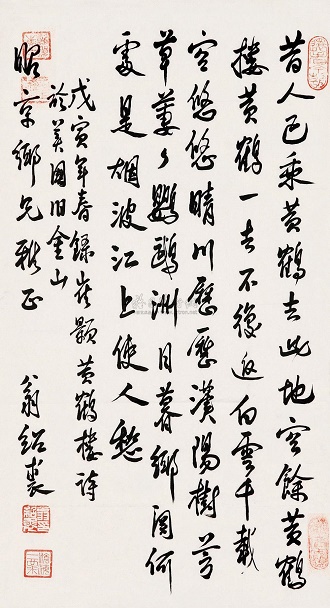 昔人已乘黄鶴去此地空餘黄鶴
樓黄鶴一去不復返白雲千載
空悠悠晴川歷歷漢陽樹芳
草萋々鸚鵡洲日暮鄉関何
處是烟波江上使人愁
戊寅年春録崔顥黄鶴樓詩
於美國旧金山
昭京鄉兄雅正
翁紹裘